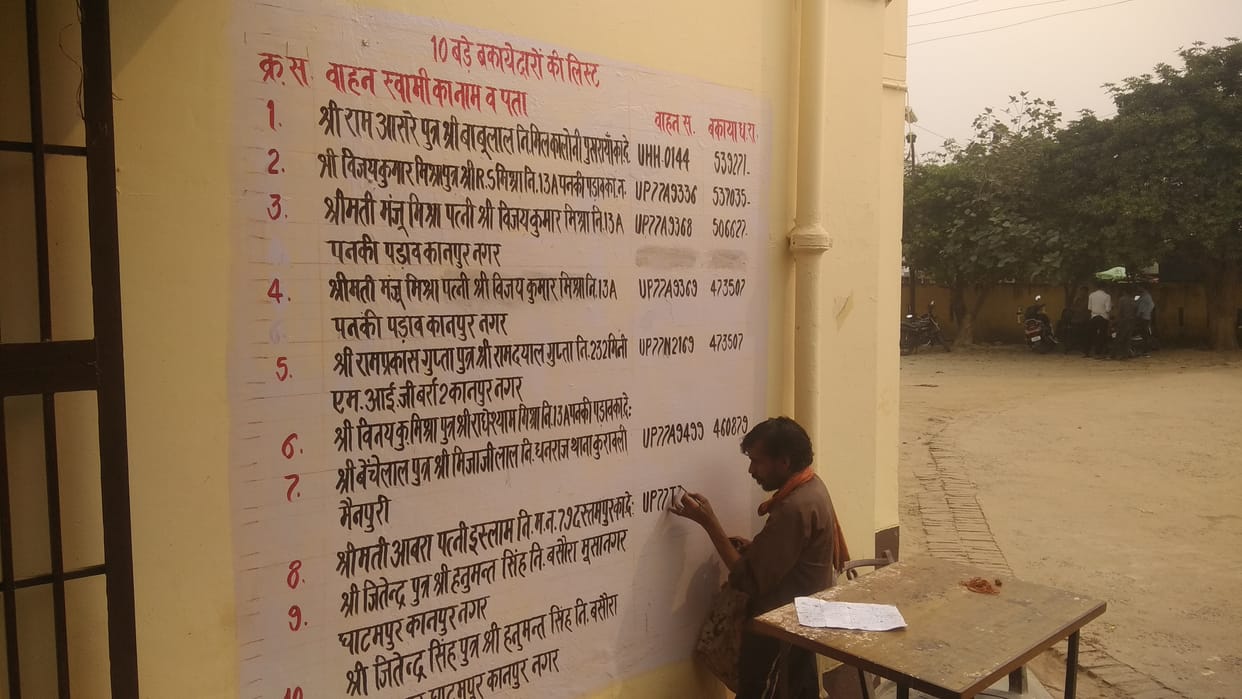 10 बड़े बकायेदारों की लिस्ट
क्र.स वाहन स्वामी का नाम व पता वाहन स. बकाया ध.रा.
1. श्री राम आसरे पुत्र श्री बाबूलाल नि.मिल कालोनी पुखरायाँ का.दे. UHH.0144 539271.
2. श्री विजय कुमार मिश्रा पुत्र श्री R.S मिश्रा नि.13A पनकी पड़ाव का.न. UP77A9336 537035-
3. श्रीमती मंजू मिश्रा पत्नी श्री विजय कुमार मिश्रा नि.13A UP77A9368 506627.
पनकी पड़ाव कानपुर नगर
4. श्रीमती मंजू मिश्रा पत्नी श्री विजय कुमार मिश्रा नि.13A UP77A9369 473507
पनकी पड़ाव कानपुर नगर
5. श्री रामप्रकास गुप्ता पुत्र श्री रामदयाल गुप्ता नि.232 मिनी UP77N2169 473507
एम.आई.जी बर्रा 2 कानपुर नगर
6. श्री विनय कु.मिश्रा पुत्र श्री राधेश्याम मिश्रा नि.13A पनकी पड़ाव का.दे: UP77A9499 460879
7. श्री बेचेलाल पुत्र श्री मिजाजी लाल नि.धनराज थाना कुरावली
मैनपुरी
8. श्रीमती आबरा पत्नी इस्लाम नि.म.न.79 दस्तमपुर का.दे: UP77T
9. श्री जितेन्द्र पुत्र श्री हनुमन्त सिंह नि. बसौरा मूसानगर
घाटमपुर कानपुर नगर
10 श्री जितेन्द्र सिंह पुत्र श्री हनुमन्त सिंह नि. बसौरा
घाटमपुर कानपुर नगर